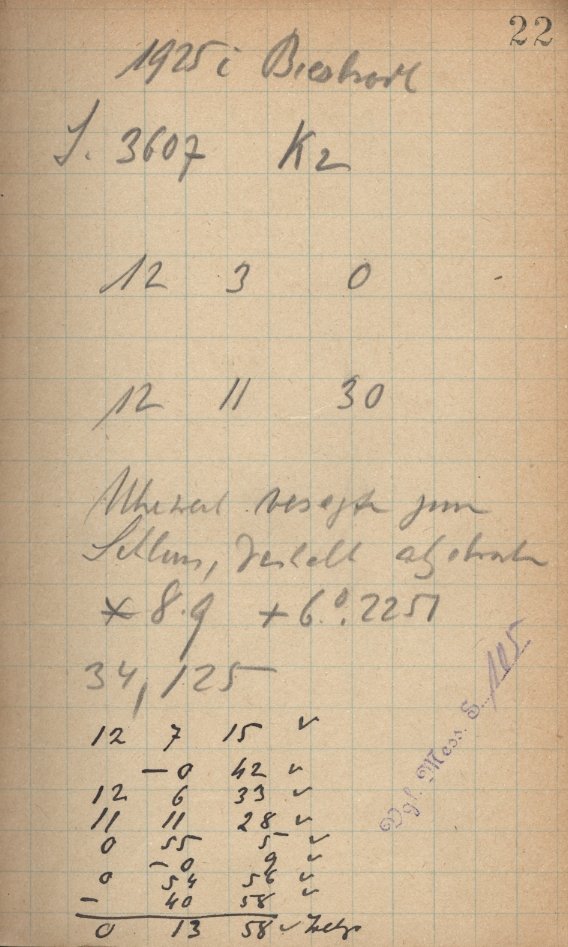 22
1925 i
S. 3607 K2
12 3 0
12 11 30
Uhrwerk versagte zum
Schluss, deshalb abgebrochen
* 8.9 + 6.0.2251
34,125
12 7 15 ✓
— 0 42 ✓
12 6 33 ✓
11 11 28 ✓
0 55 5 ✓
- 0 9 ✓
0 54 56 ✓
- 40 58 ✓
0 13 58 ✓
Vgl. Mess. S. 105